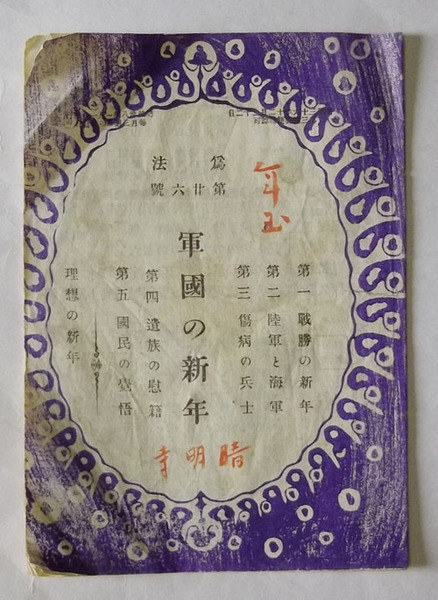 爲法
第廿六號
年玉
第一 戰勝の新年
第二 陸軍と海軍
第三 傷病の兵士
軍國の新年
第四 遺族の慰藉
第五 國民の覺悟
理想の新年
明寺